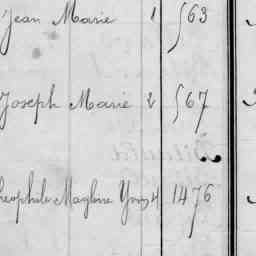 Jean Marie 1 563
Joseph Marie 2 567
Théophile Magloire Yves 4 1476